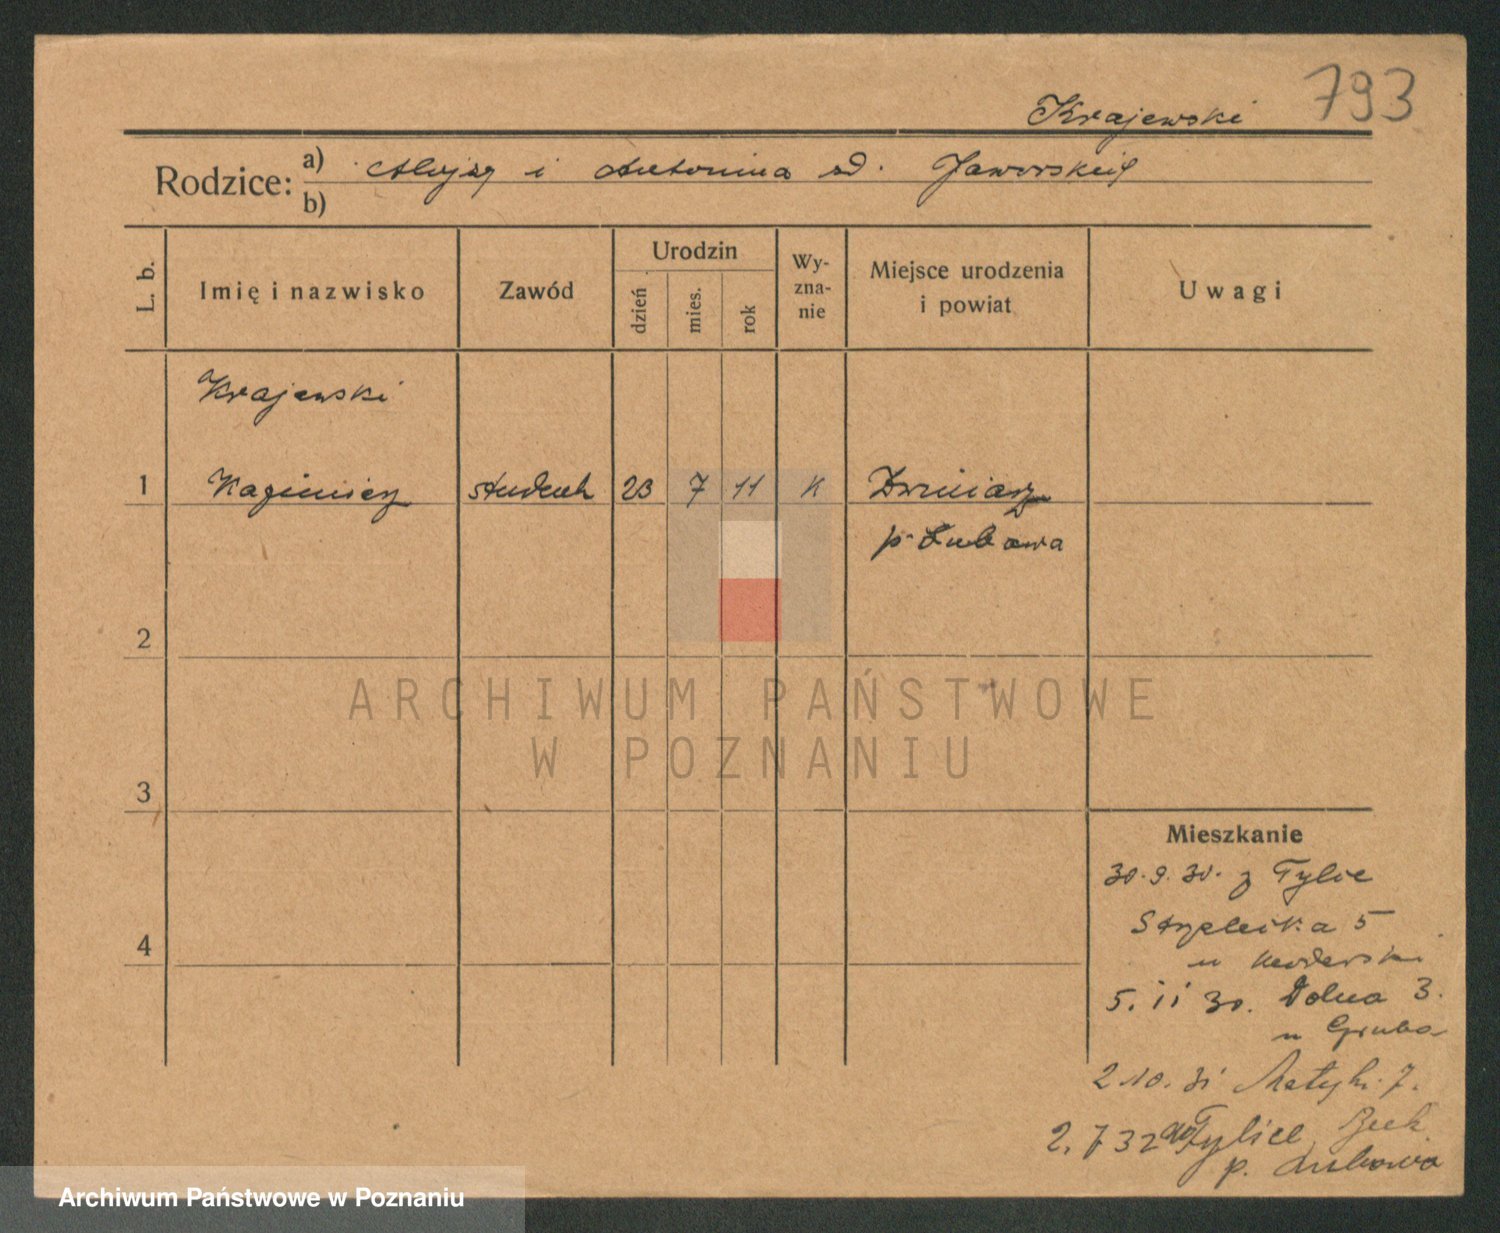 793
Krajewski
Rodzice:
a) Alojzy i Antonina zd. Jaworskich
b)
L. b.
Imię i nazwisko
Zawód
Urodzin
dzień
mies.
rok
Wy-
zna-
nie
Miejsce urodzenia
i powiat
Uwagi
Krajewski
1 Kazimierz student 23 7 11 K
p. Lubawa
2
ARCHIWUM PAŃSTWOWE
W POZNANIU
3
Mieszkanie
30.9.30. z Tylic
Strzelecka 5
u
4
5. 11 30. Dolna 3.
u Gruba
2 10. 31 Matejki 7.
2. 7 32 do Tylice
p. Lubawa
Archiwum Państwowe w Poznaniu